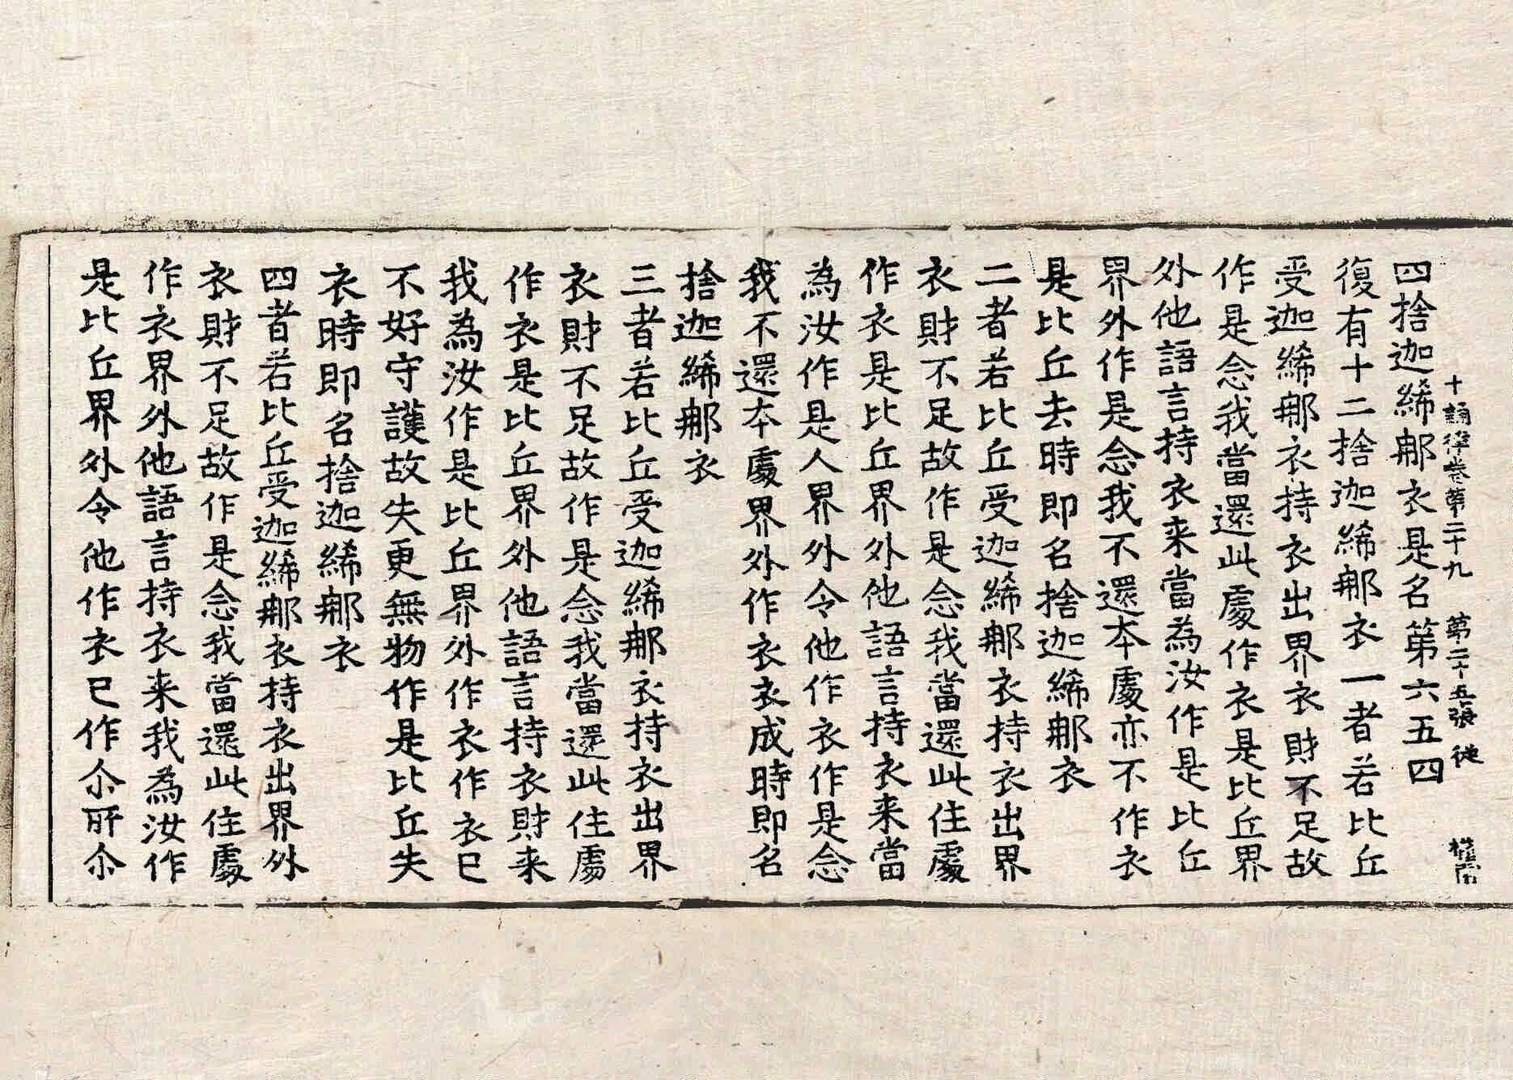 十誦律卷第二十九 第二十五張 徒
四捨迦絺那衣是名第六五四
復有十二捨迦絺那衣一者若比丘
受迦絺那衣持衣出界衣財不足故
作是念我當還此處作衣是比丘界
外他語言持衣来當為汝作是比丘
界外作是念我不還本處亦不作衣
是比丘去時即名捨迦絺那衣
二者若比丘受迦絺那衣持衣出界
衣財不足故作是念我當還此住處
作衣是比丘界外他語言持衣来當
為汝作是人界外令他作衣作是念
我不還本處界外作衣衣成時即名
捨迦絺那衣
三者若比丘受迦絺那衣持衣出界
衣財不足故作是念我當還此住處
作衣是比丘界外他語言持衣財来
我為汝作是比丘界外作衣作衣已
不好守護故失更無物作是比丘失
衣時即名捨迦絺那衣
四者若比丘受迦絺那衣持衣出界外
衣財不足故作是念我當還此住處
作衣界外他語言持衣来我為汝作
是比丘界外令他作衣已作尒所尒